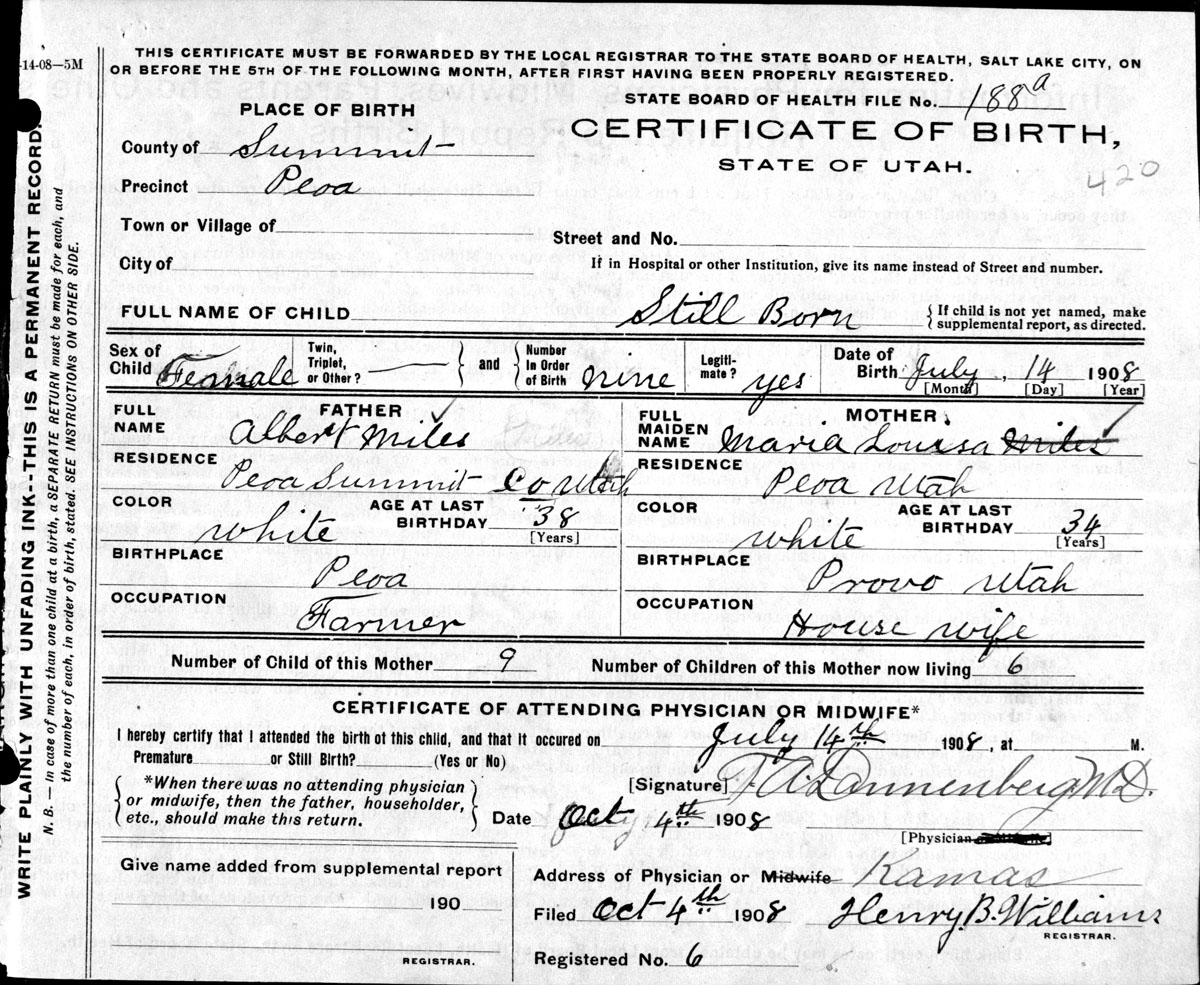 -14-08—5M
THIS CERTIFICATE MUST BE FORWARDED BY THE LOCAL REGISTRAR TO THE STATE BOARD OF HEALTH, SALT LAKE CITY, ON
OR BEFORE THE 5TH OF THE FOLLOWING MONTH, AFTER FIRST HAVING BEEN PROPERLY REGISTERED.
PLACE OF BIRTH
STATE BOARD OF HEALTH FILE No. 188a
CERTIFICATE OF BIRTH,
STATE OF UTAH.
420
County of Summit
Precinct Peoa
Town or Village of
Street and No.
City of
If in Hospital or other Institution, give its name instead of Street and number.
FULL NAME OF CHILD Still Born { If child is not yet named, make supplemental report, as directed.
Sex of Child Female Twin, Triplet, or Other? — } and { Number In Order of Birth nine Legiti-mate? yes Date of Birth July, 14 1908
[Month] [Day] [Year]
FATHER
FULL NAME Albert Miles
RESIDENCE
Peoa Summit Co Utah
COLOR white AGE AT LAST BIRTHDAY 38 [Years]
BIRTHPLACE
Peoa
OCCUPATION
Farmer
MOTHER
FULL MAIDEN NAME Maria Louisa Miles
RESIDENCE
Peoa Utah
COLOR white AGE AT LAST BIRTHDAY 34 [Years]
BIRTHPLACE
Provo Utah
OCCUPATION
House wife
Number of Child of this Mother 9 Number of Children of this Mother now living 6
CERTIFICATE OF ATTENDING PHYSICIAN OR MIDWIFE*
I hereby certify that I attended the birth of this child, and that it occured on July 14th 1908, at M.
Premature or Still Birth? (Yes or No)
{ *When there was no attending physician
or midwife, then the father, householder,
etc., should make this return. }
[Signature] Dannenberg M.D.
Date Oct 4th 1908
[Physician or Midwife]
Give name added from supplemental report
190
REGISTRAR.
Address of Physician or Midwife Kamas
Filed Oct 4th 1908 Henry B. Williams
REGISTRAR.
Registered No. 6
WRITE PLAINLY WITH UNFADING INK--THIS IS A PERMANENT RECORD.
N. B. — In case of more than one child at a birth, a SEPARATE RETURN must be made for each, and
the number of each, in order of birth, stated. SEE INSTRUCTIONS ON OTHER SIDE.